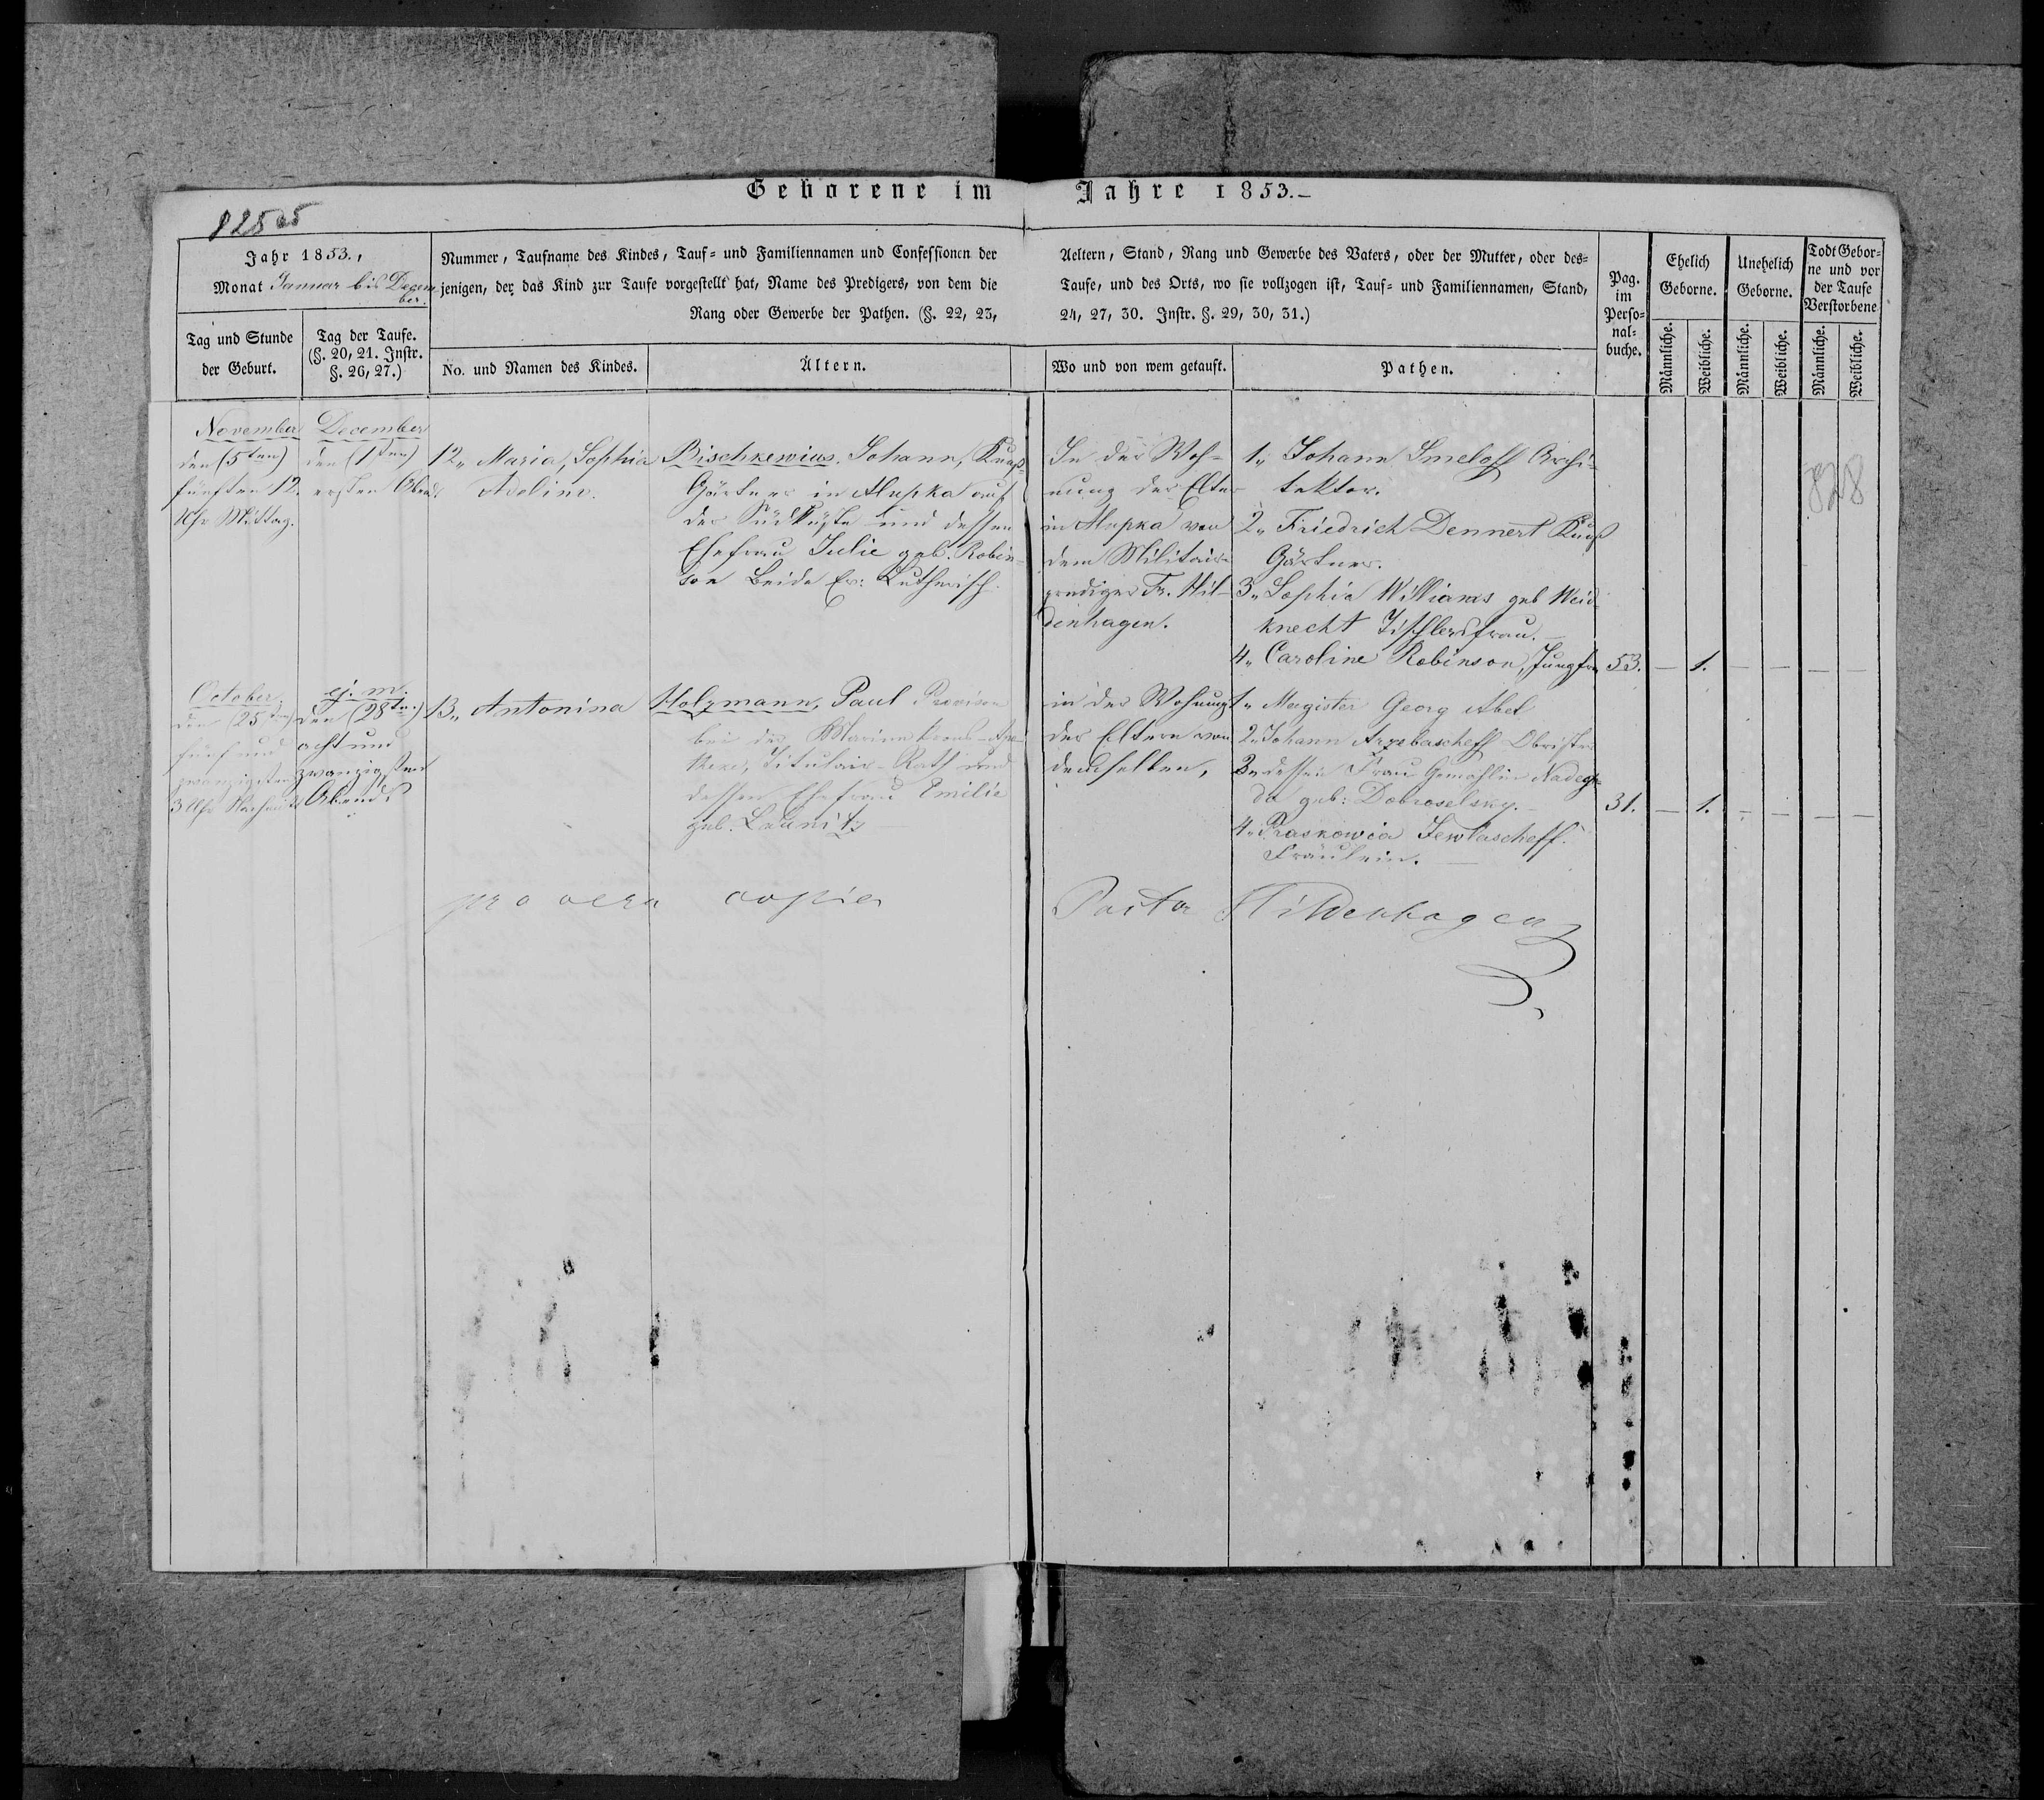 Geborene im Jahre 1853.–
825
Jahr 1853.,
Monat Januar bis Decem
ber.
Tag und Stunde
der Geburt.
Tag der Taufe.
(§. 20, 21. Instr.
§. 26, 27.)
Nummer, Taufname des Kindes, Tauf= und Familiennamen und Confessionen der
jenigen, der das Kind zur Taufe vorgestellt hat, Name des Predigers, von dem die
Rang oder Gewerbe der Pathen. (§. 22, 23,
No. und Namen des Kindes.
Ältern.
Aeltern, Stand, Rang und Gewerbe des Vaters, oder der Mutter, oder des=
Taufe, und des Orts, wo sie vollzogen ist, Tauf= und Familiennamen, Stand,
24, 27, 30. Instr. §. 29, 30, 31.)
Wo und von wem getauft.
Pathen.
Pag.
im
Perso=
nal=
buche.
Ehelich
Geborne.
Unehelich
Geborne.
Todt Gebor=
ne und vor
der Taufe
Verstorbene
Männliche.
Weibliche.
Männliche.
Weibliche.
Männliche.
Weibliche.
November
den (5ten)
fünften 12.
Uhr Mittag.
December
den (1ten)
ersten Abends
12„ Maria, Sophia
Adeline.
Bischkewius, Johann, Kunst-
Gärtner in Alupka auf
der Südküste und dessen
Ehefrau Julie geb. Robin-
son Beide Ev: Lutherisch.
In der Woh-
nung der Elter
in Alupka von
dem Militair-
prediger Fr. Hil-
denhagen.
1„ Johann Smeloff Archi-
tektor.
2„ Friedrich Dennert Kunst
Gärtner.
3„ Sophia Williams geb Weid
knecht Tischlersfrau.–
4„ Caroline Robinson, Jungfr.
53. – 1. – – – –
828
October
den (25ten)
fünf und
zwanzigsten
3 Uhr Nachmitt
ej. m.
den (28ten)
acht und
zwanzigsten
Abends
13„ Antonina
Holzmann, Paul Provisor
bei der Marine Krons-Apo-
theke, Titulair-Rath und
dessen Ehefrau Emilie
geb. Launitz
in der Wohnung
der Eltern von
demselben,
1„ Magister Georg Abel
2„ Johann Arzebascheff Obrister
3„ dessen Frau Gemahlin Nadeg-
da geb: Dobroselsky.–
4„ Praskowia Jewlascheff.
Fräulein. –
31. – 1. – – – –
pro vera copia
Pastor Hildenhagen